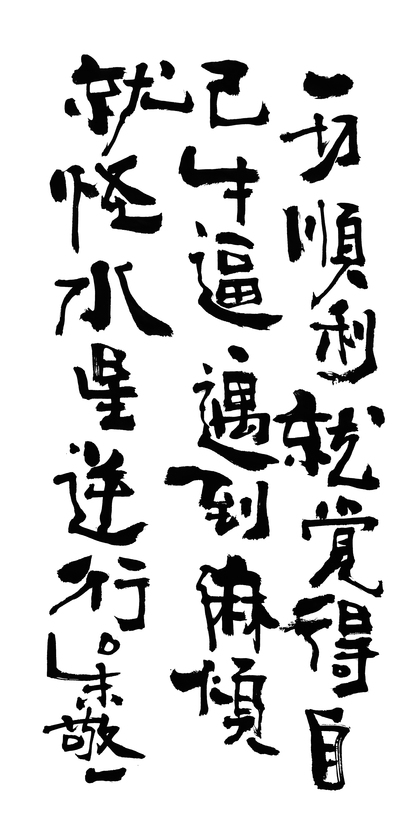 一切順利就覺得自
己牛逼遇到麻煩
就怪水星逆行。
朱敬一